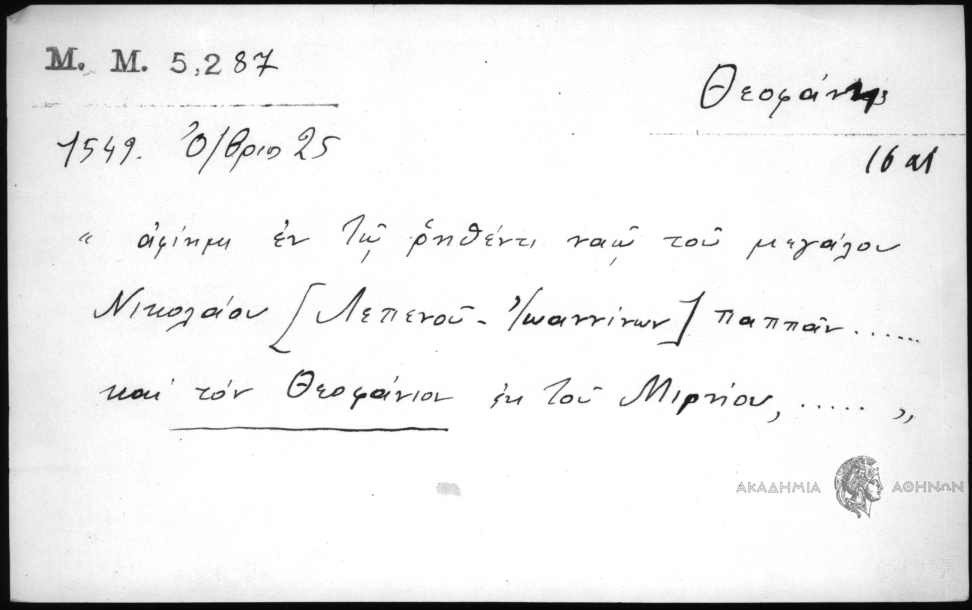 Μ. Μ. 5,287
Θεοφάνης
1549. Ὀ/βριος 25
16 αι
“ ἀφίημι ἐν τῷ ῥηθέντι ναῷ τοῦ μεγάλου
Νικολάου [Λεπενοῦ - Ἰωαννίνων] παππᾶν ......
καί τόν Θεοφάνιον ἐκ τοῦ Μιρνίου, ..... „
ΑΚΑΔΗΜΙΑ ΑΘΗΝΩΝ